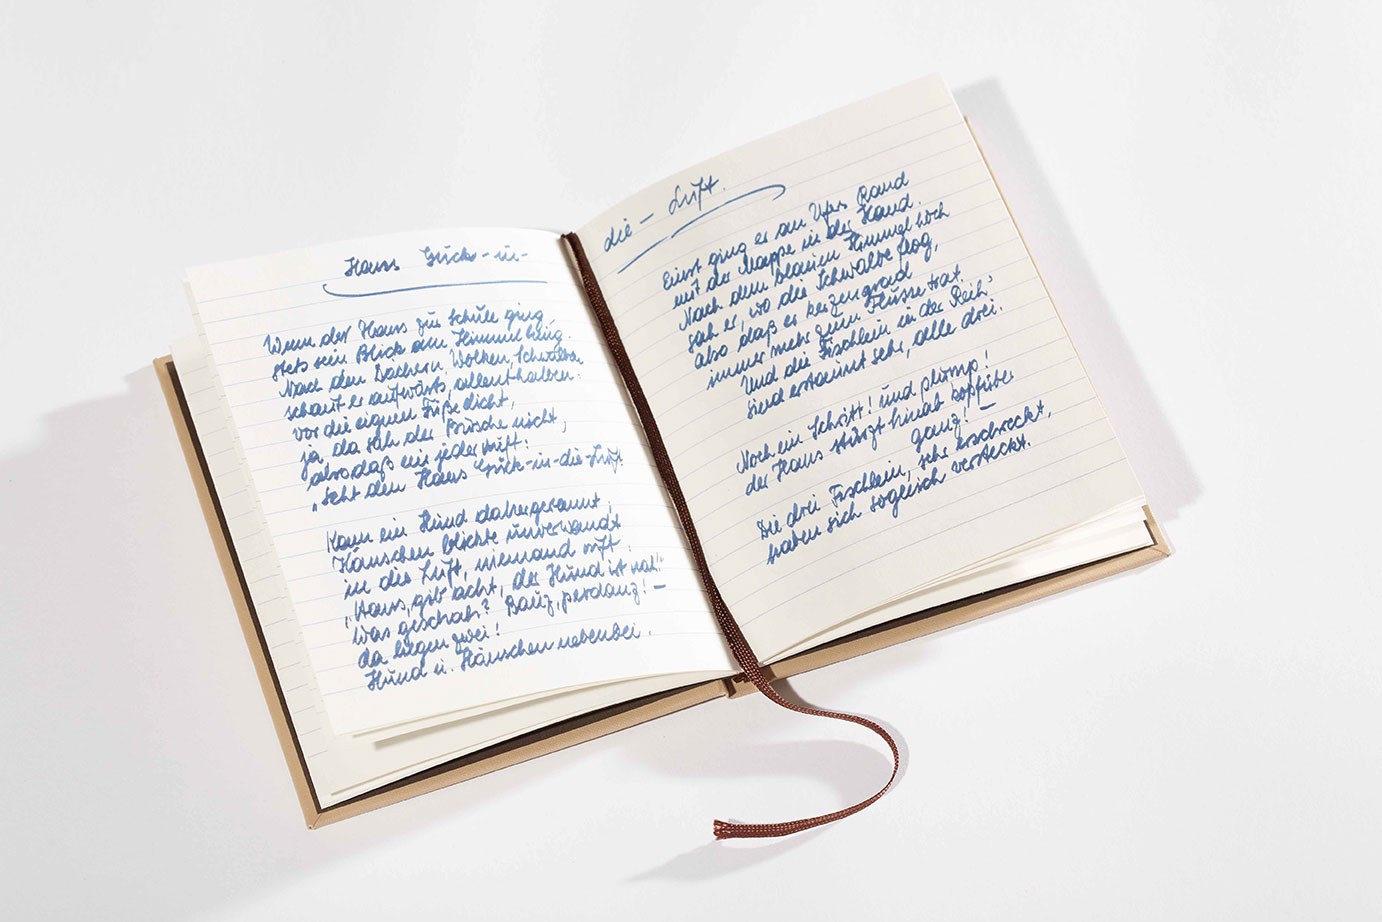 Hans Guck-in-
Wenn der Hans zur Schule ging,
stets sein Blick am Himmel hing.
Nach den Dächern, Wolken, Schwalben
schaut er aufwärts, allenthalben:
vor die eignen Füße dicht,
ja, da sah der Bursche nicht,
also daß ein jeder ruft:
„Seht den Hans Guck-in-die-Luft
Kam ein Hund dahergerannt,
Hänschen blickte unverwandt
in die Luft, niemand ruft:
„Hans, gib acht, der Hund ist nah!"
Was geschah? Bauz, perdauz! –
da liegen zwei!
Hund u. Hänschen nebenbei.
die – Luft.
Einst ging er an Ufers Rand
mit der Mappe in der Hand.
Nach dem blauen Himmel hoch
sah er, wo die Schwalbe flog,
also daß er kerzengrad
immer mehr zum Flusse trat.
Und die Fischlein in der Reih'
sind erstaunt sehr, alle drei.
Noch ein Schritt! und plump!
der Hans stürzt hinab kopfüber
ganz! –
Die drei Fischlein, sehr erschreckt,
haben sich sogleich versteckt.